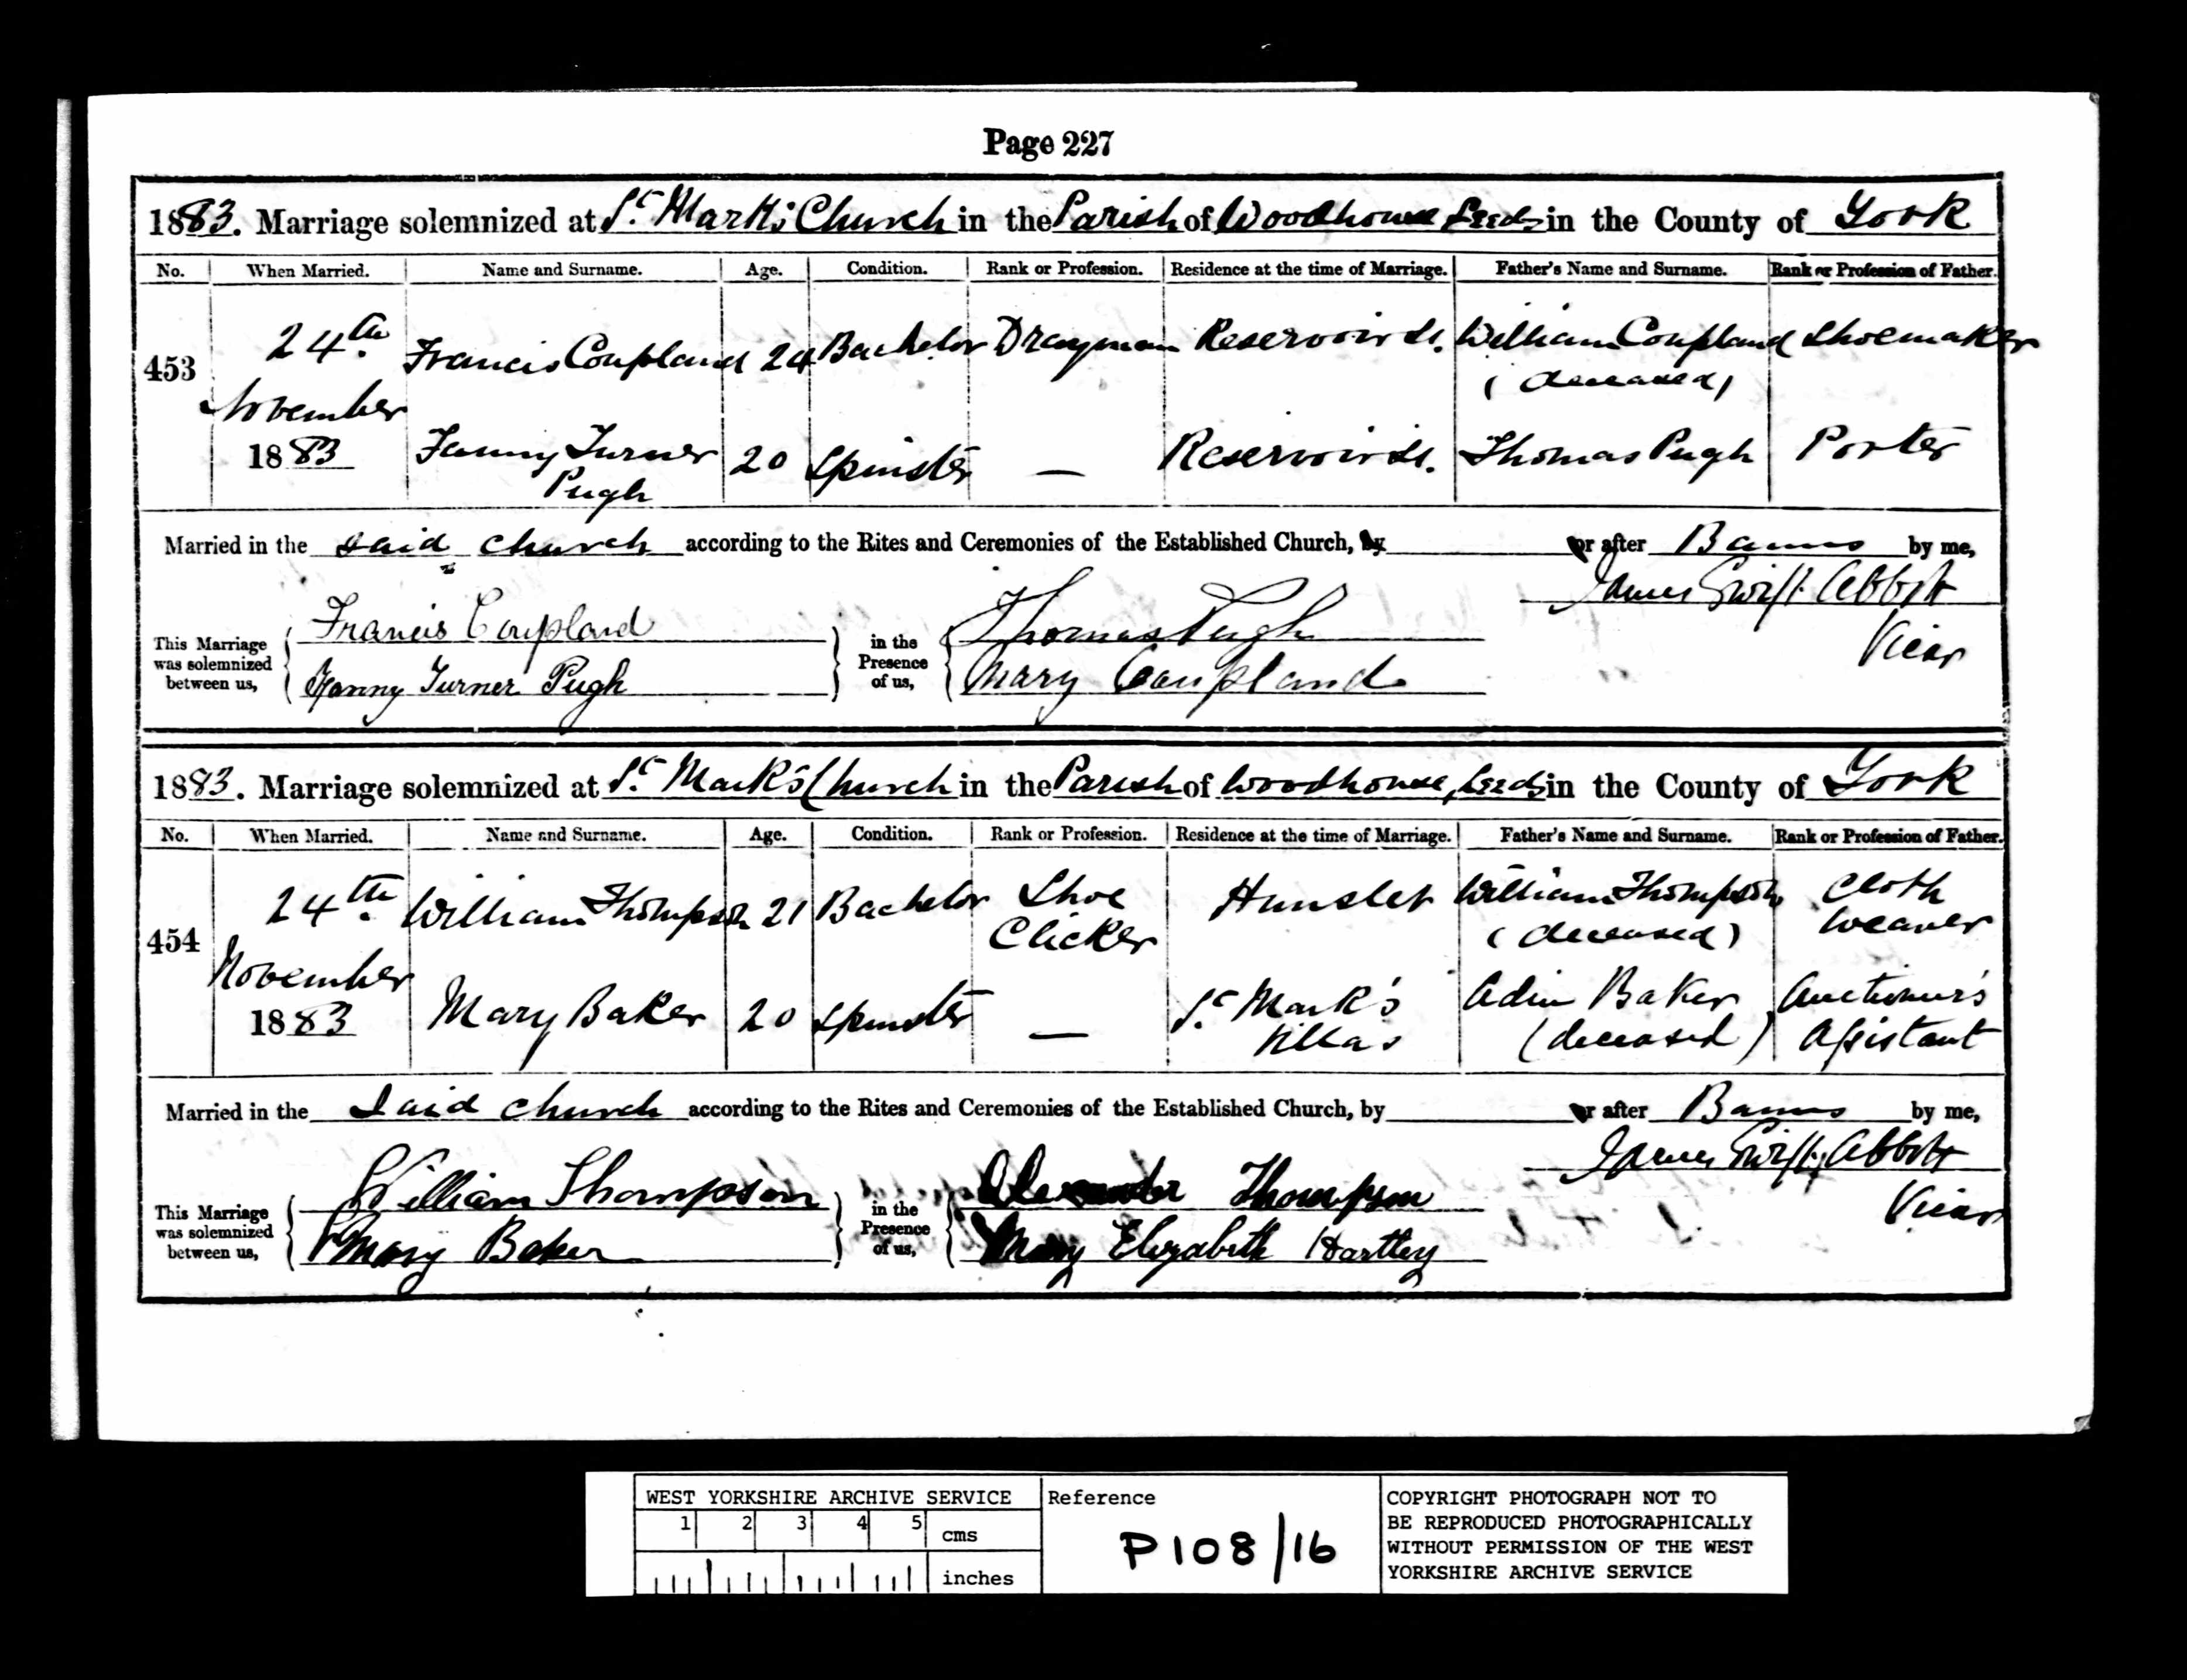 Page 227
1883. Marriage solemnized at St. Mark's Church in the Parish of Woodhouse Leeds in the County of York
No. When Married. Name and Surname. Age. Condition. Rank or Profession. Residence at the time of Marriage. Father's Name and Surname. Rank or Profession of Father.
453 24th November 1883 Francis Coupland 24 Bachelor Drayman Reservoir St. William Coupland (deceased) Shoemaker
Fanny Turner Pugh 20 Spinster — Reservoir St. Thomas Pugh Porter
Married in the said church according to the Rites and Ceremonies of the Established Church, by or after Banns by me,
James Swift Abbott
Vicar
This Marriage was solemnized between us, Francis Coupland in the Presence of us, Thomas Pugh
Fanny Turner Pugh Mary Coupland
1883. Marriage solemnized at St. Mark's Church in the Parish of Woodhouse, Leeds in the County of York
No. When Married. Name and Surname. Age. Condition. Rank or Profession. Residence at the time of Marriage. Father's Name and Surname. Rank or Profession of Father.
454 24th November 1883 William Thompson 21 Bachelor Shoe Clicker Hunslet William Thompson (deceased) Cloth Weaver
Mary Baker 20 Spinster — St. Mark's Villas Adin Baker (deceased) Auctioneer's Assistant
Married in the said church according to the Rites and Ceremonies of the Established Church, by or after Banns by me,
James Swift Abbott
Vicar
This Marriage was solemnized between us, William Thompson in the Presence of us, Alexander Thompson
Mary Baker Mary Elizabeth Hartley
WEST YORKSHIRE ARCHIVE SERVICE
1 2 3 4 5 cms
inches
Reference
P108/16
COPYRIGHT PHOTOGRAPH NOT TO
BE REPRODUCED PHOTOGRAPHICALLY
WITHOUT PERMISSION OF THE WEST
YORKSHIRE ARCHIVE SERVICE